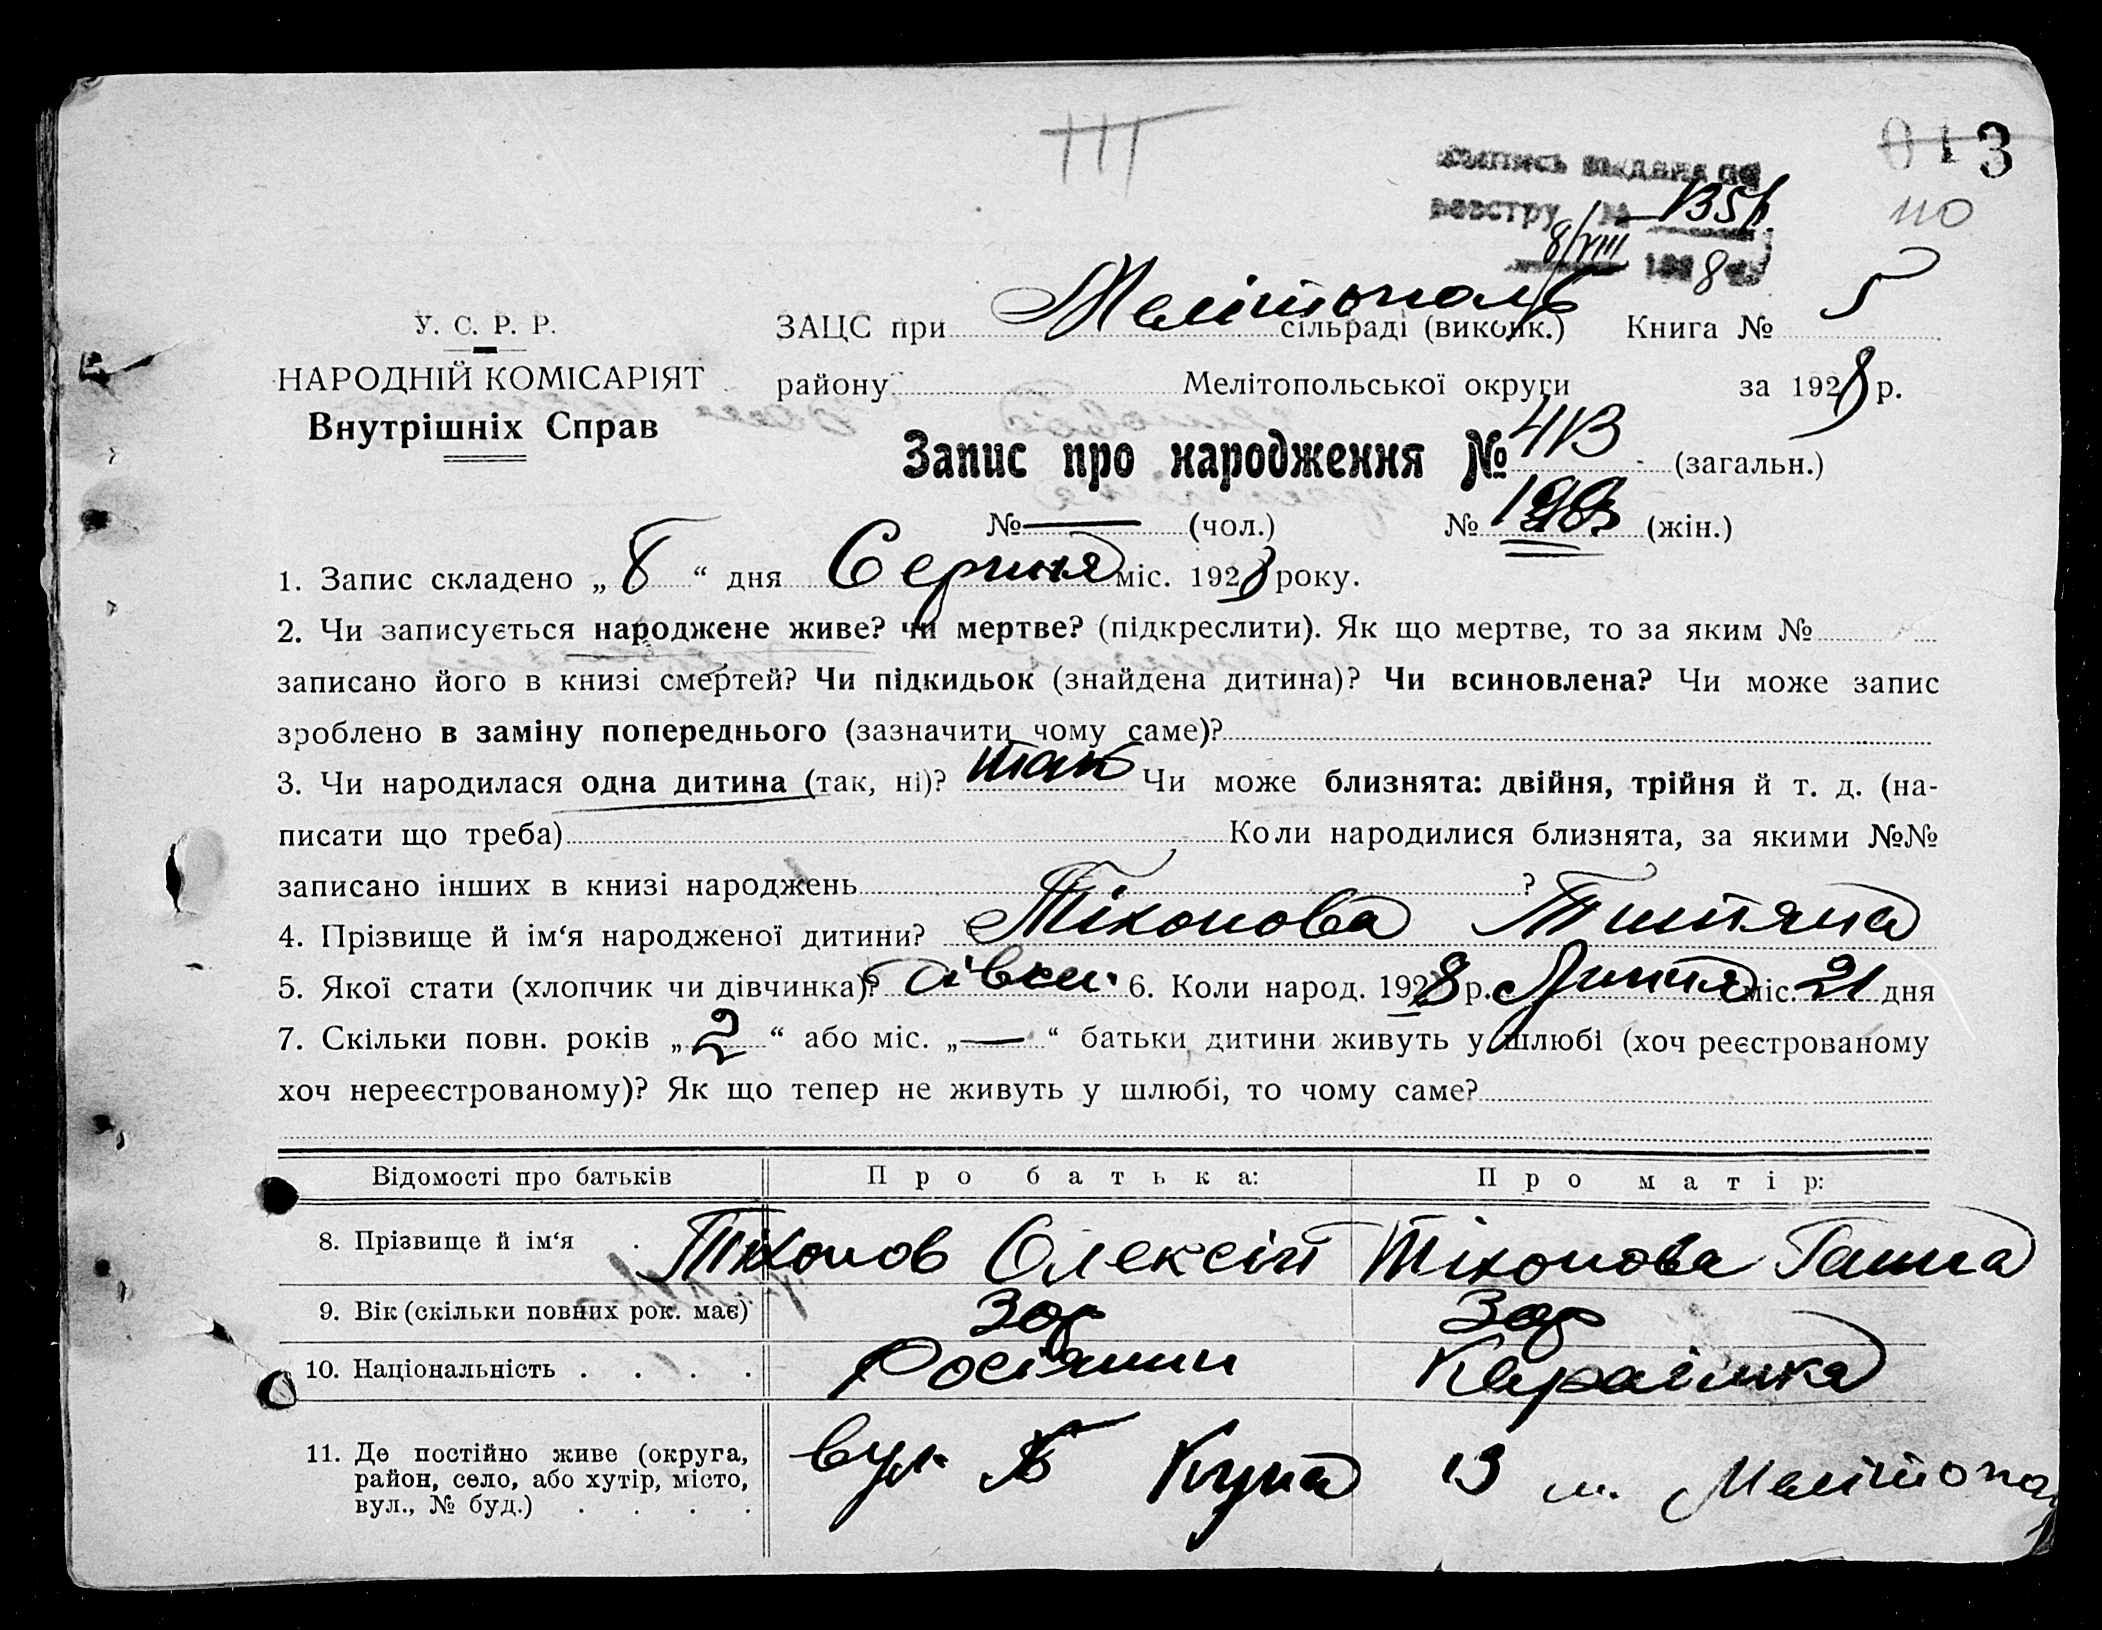 013
110
випись видана по
реєстру № 1351
8/VIII 1928 р.
У. С. Р. Р.
НАРОДНІЙ КОМІСАРІЯТ
Внутрішніх Справ
ЗАЦС при Мелітополь сільраді (виконк.) Книга № 5
району Мелітопольської округи за 1928 р.
Запис про народження № 413 (загальн.)
№ — (чол.) № (жін.)
1. Запис складено „8“ дня Серпня міс. 1928 року.
2. Чи записується народжене живе? чи мертве? (підкреслити). Як що мертве, то за яким №
записано його в книзі смертей? Чи підкидьок (знайдена дитина)? Чи всиновлена? Чи може запис
зроблено в заміну попереднього (зазначити чому саме)?
3. Чи народилася одна дитина (так, ні)? так Чи може близнята: двійня, трійня й т. д. (на-
писати що треба) Коли народилися близнята, за якими №№
записано інших в книзі народжень ?
4. Прізвище й ім‘я народженої дитини? Тіхонова Титяна
5. Якої стати (хлопчик чи дівчинка)? дівки. 6. Коли народ. 1928 р. Липня міс. 21 дня
7. Скільки повн. років „2“ або міс. „—“ батьки дитини живуть у шлюбі (хоч реєстрованому
хоч нереєстрованому)? Як що тепер не живуть у шлюбі, то чому саме?
Відомості про батьків Про батька: Про матір:
8. Прізвище й ім‘я . Тіхонов Олексій Тіхонова Ганна
9. Вік (скільки повних рок. має) 30р 30р
10. Національність . . . . Росіянин Караїмка
11. Де постійно живе (округа,
район, село, або хутір, місто,
вул., № буд.) . . . .
вул. К Куна 13 м. Мелітополь